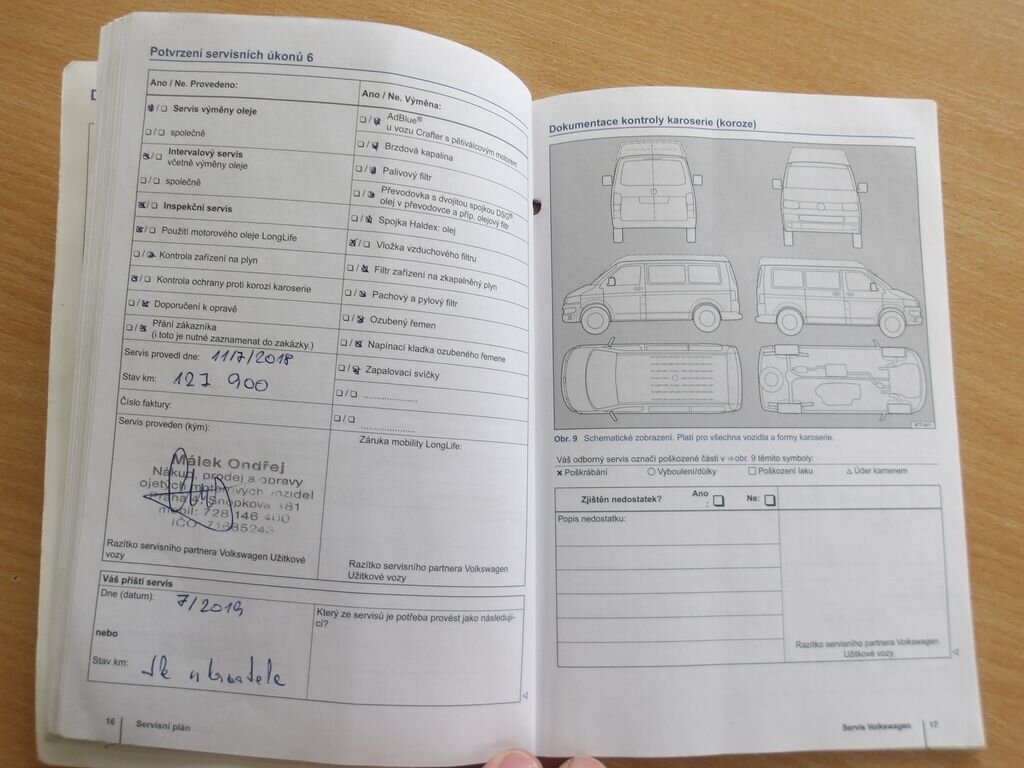 Potvrzení servisních úkonů 6
Ano / Ne. Provedeno:
☒/❏ Servis výměny oleje
❏/❏ společně
☒/❏ Intervalový servis
včetně výměny oleje
❏/❏ společně
☒/❏ Inspekční servis
☒/❏ Použití motorového oleje LongLife
❏/☒ Kontrola zařízení na plyn
☒/❏ Kontrola ochrany proti korozi karoserie
❏/☒ Doporučení k opravě
❏/☒ Přání zákazníka
(i toto je nutné zaznamenat do zakázky.)
Servis provedl dne: 11/7/2018
Stav km: 127 900
Číslo faktury:
Servis proveden (kým):
Málek Ondřej
Nákup, prodej a opravy
ojetých motorových vozidel
Praha 4, Šnopkova 481
mobil: 728 146 400
IČO:
Razítko servisního partnera Volkswagen Užitkové
vozy
Ano / Ne. Výměna:
❏/☒ AdBlue®
u vozu Crafter s pětiválcovým motorem
❏/☒ Brzdová kapalina
❏/☒ Palivový filtr
❏/☒ Převodovka s dvojitou spojkou DSG®:
olej v převodovce a příp. olejový filtr
❏/☒ Spojka Haldex: olej
☒/❏ Vložka vzduchového filtru
❏/☒ Filtr zařízení na zkapalněný plyn
❏/☒ Pachový a pylový filtr
❏/☒ Ozubený řemen
❏/☒ Napínací kladka ozubeného řemene
❏/☒ Zapalovací svíčky
❏/❏ .....................
❏/❏ .....................
Záruka mobility LongLife:
Razítko servisního partnera Volkswagen
Užitkové vozy
Váš příští servis
Dne (datum): 7/2019
nebo
Stav km:
Který ze servisů je potřeba provést jako následují-
cí?
16 Servisní plán
Dokumentace kontroly karoserie (koroze)
Obr. 9 Schematické zobrazení. Platí pro všechna vozidla a formy karoserie.
Váš odborný servis označí poškozené části v ⇒ obr. 9 těmito symboly:
× Poškrábání ○ Vyboulení/důlky □ Poškození laku △ Úder kamenem
Zjištěn nedostatek? Ano
: ❏ Ne: ❏
Popis nedostatku:
Razítko servisního partnera Volkswagen
Užitkové vozy
Servis Volkswagen 17